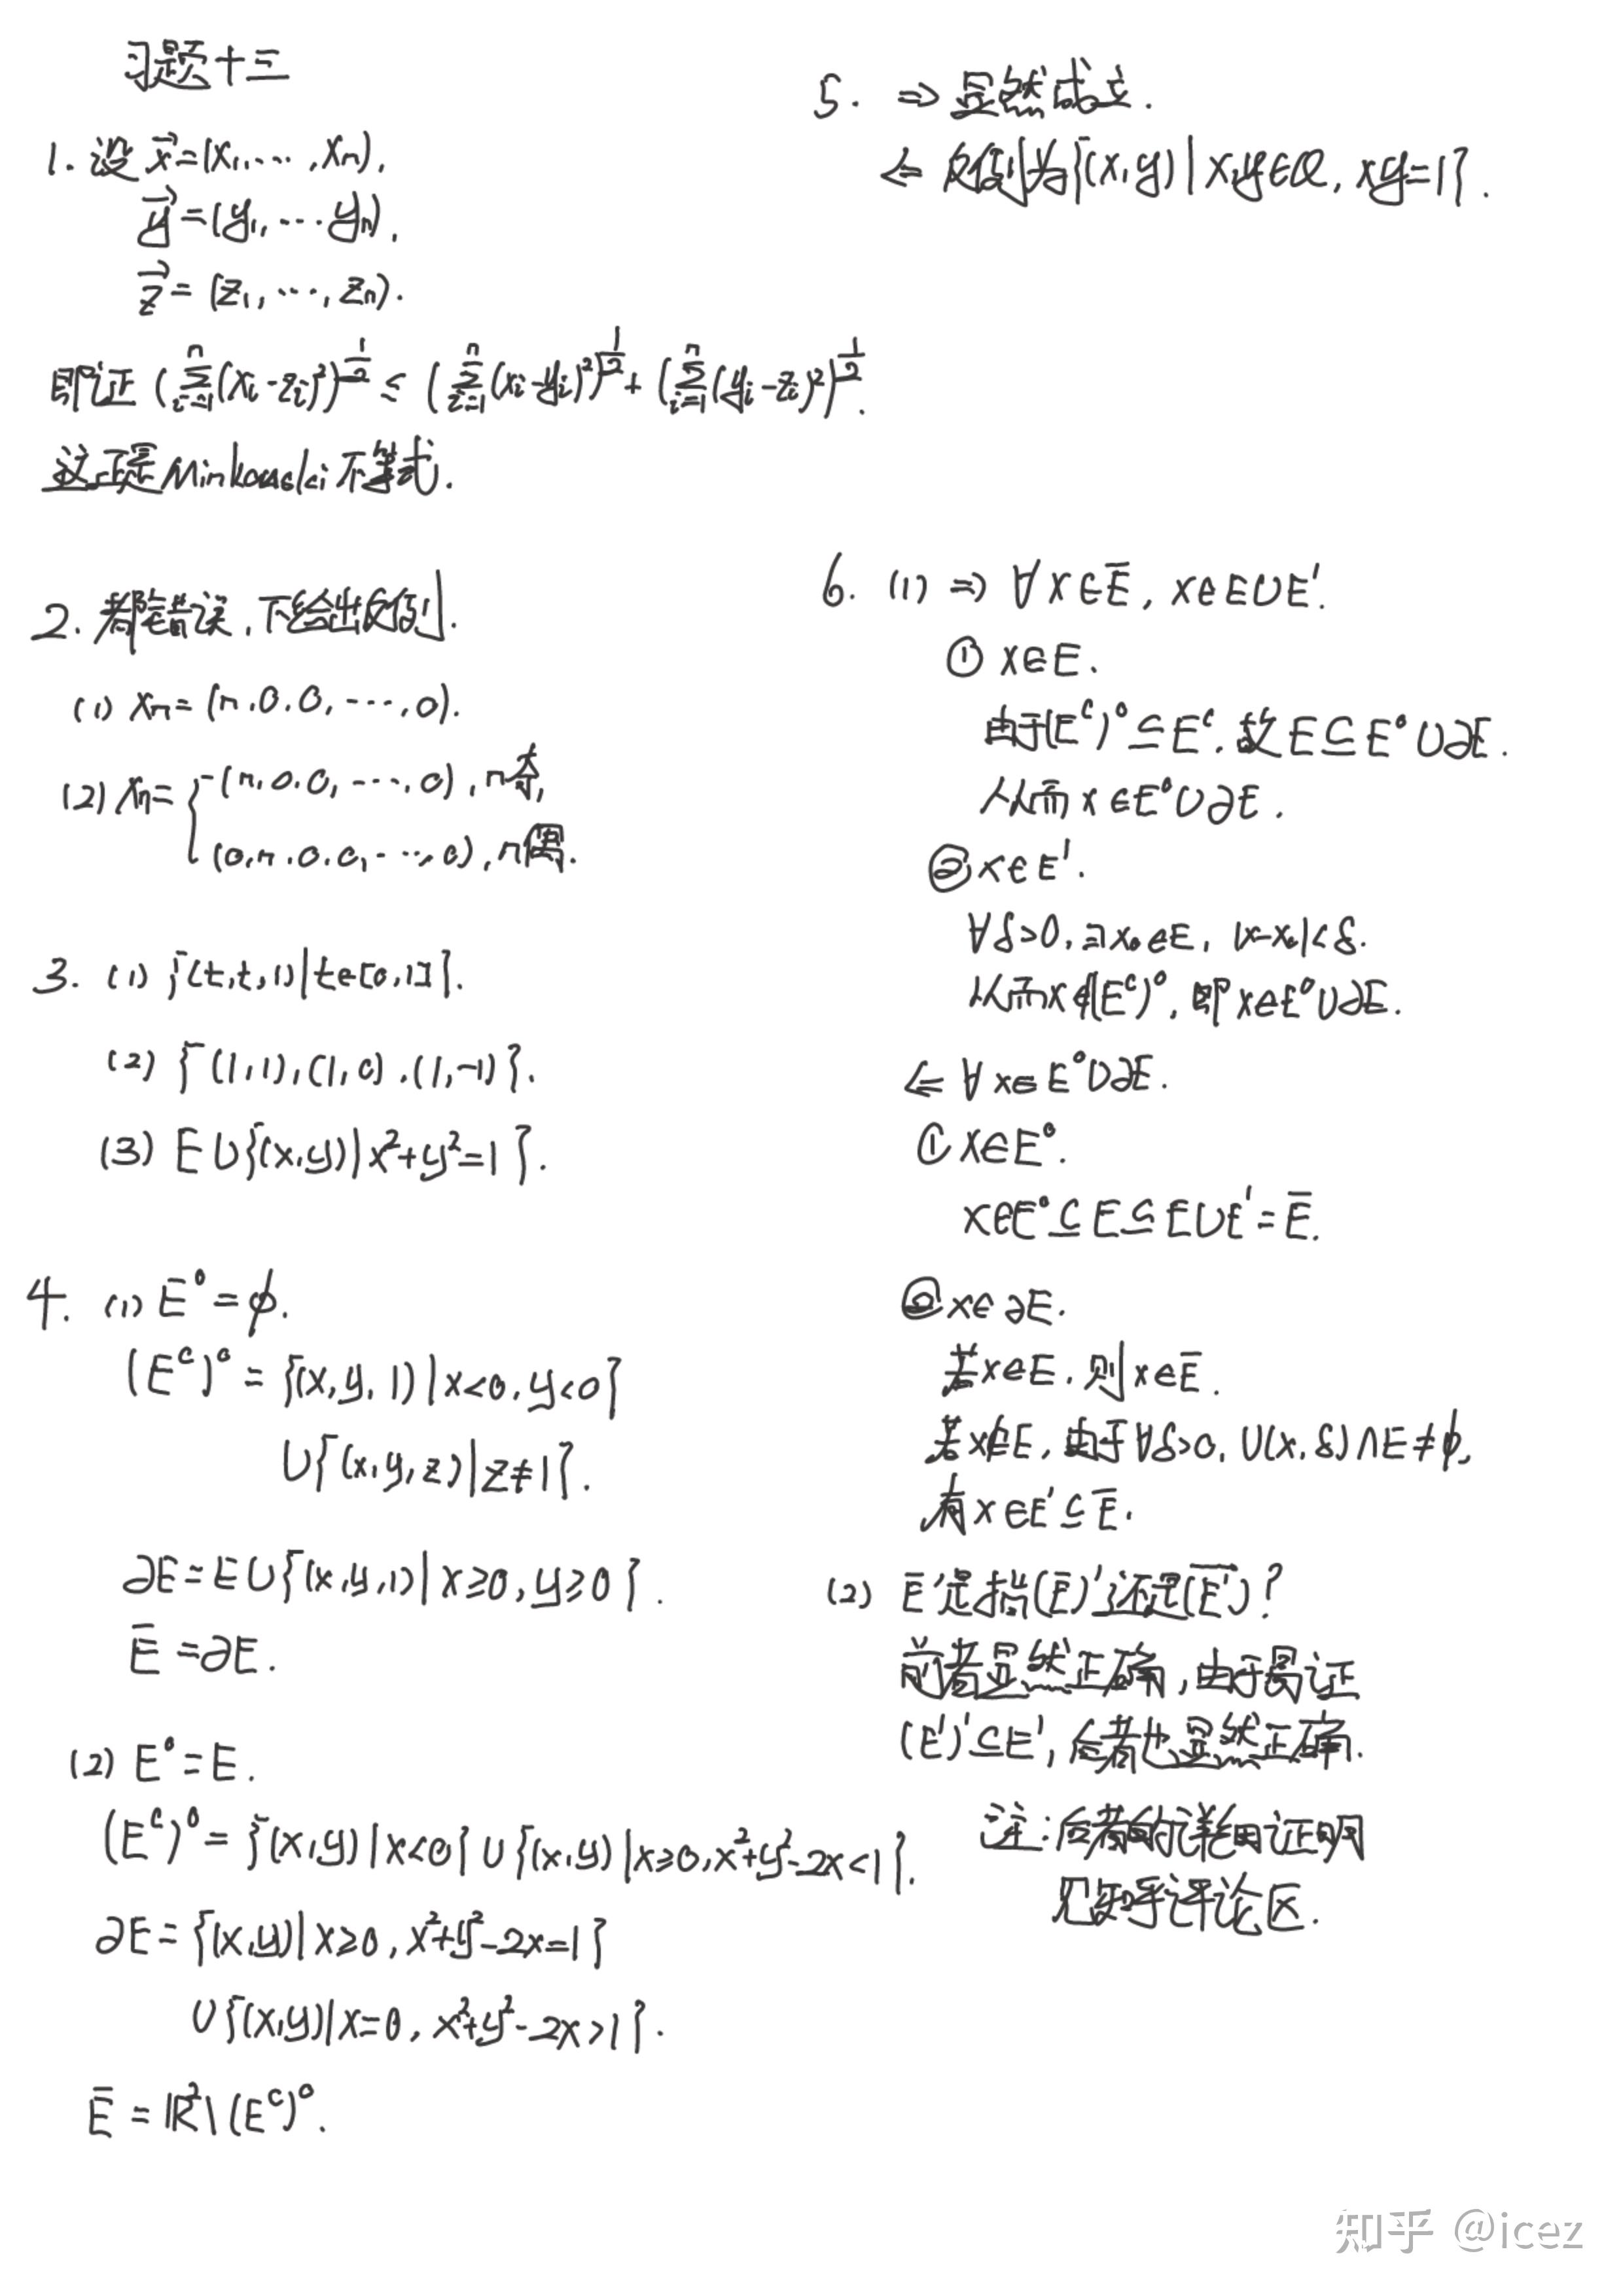 习题十三
1. 设 x⃗=(x₁,…,xₙ),
y⃗=(y₁,…yₙ),
z⃗=(z₁,…,zₙ).
即证 (∑ᵢ₌₁ⁿ(xᵢ-zᵢ)²)^½ ≤ (∑ᵢ₌₁ⁿ(xᵢ-yᵢ)²)^½ + (∑ᵢ₌₁ⁿ(yᵢ-zᵢ)²)^½.
这正是Minkowski不等式.
2. 都是错误,下给出反例.
(1) xₙ=(n,0,0,…,0).
(2) xₙ={(n,0,0,…,0),n奇,
(0,n,0,0,…,0),n偶.
3. (1) {(t,t,1)|t∈[0,1]}.
(2) {(1,1),(1,0),(1,-1)}.
(3) E∪{(x,y)|x²+y²=1}.
4. (1) E°=ϕ.
(Eᶜ)°={(x,y,1)|x<0,y<0}
∪{(x,y,z)|z≠1}.
∂E=E∪{(x,y,1)|x≥0,y≥0}.
E̅=∂E.
(2) E°=E.
(Eᶜ)°={(x,y)|x<0}∪{(x,y)|x≥0,x²+y²-2x<1}.
∂E={(x,y)|x≥0,x²+y²-2x=1}
∪{(x,y)|x=0,x²+y²-2x>1}.
E̅=ℝ²\(Eᶜ)°.
5. ⇒显然成立.
⇐ 反例为{(x,y)|x,y∈Q,xy=1}.
6. (1) ⇒ ∀x∈E̅,x∈E∪E'.
① x∈E.
由于(Eᶜ)°⊆Eᶜ,故E⊆E°∪∂E.
从而x∈E°∪∂E.
② x∈E'.
∀δ>0,∃x₀∈E,|x-x₀|<δ.
从而x∉(Eᶜ)°,即x∈E°∪∂E.
⇐ ∀x∈E°∪∂E.
① x∈E°.
x∈E°⊆E⊆E∪E'=E̅.
② x∈∂E.
若x∈E,则x∈E̅.
若x∉E,由于∀δ>0,U(x,δ)∩E≠ϕ,
有x∈E'⊆E̅.
(2) E̅'是指(E̅)'还是(E')̅?
前者显然正确,由于易证
(E')'⊆E',后者也显然正确.
注:后者的详细证明
见知乎评论区.
知乎 @icez